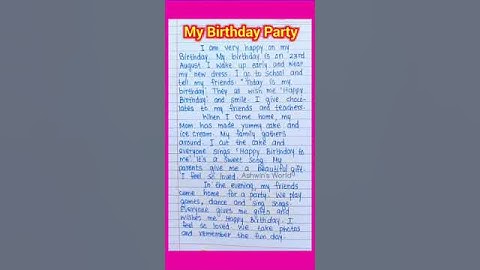 My Birthday Party
I am very happy on my
Birthday. My birthday is on 23rd
August. I wake up early and wear
my new dress. I go to school and
tell my friends. "Today is my
birthday." They all wish me "Happy
Birthday" and smile. I give choco-
lates to my friends and teachers.
When I come home, my
Mom has made yummy cake and
ice cream. My family gathers
around. I cut the cake and
everyone sings "Happy Birthday to
me". It's a sweet song. My
parents give me a beautiful gift.
I feel so loved. Ashwin's World
In the evening, my friends
come home for a party. We play
games, dance and sing songs.
Everyone gives me gifts and
wishes me "Happy Birthday". I
feel so loved. We take photos
and remember the fun day.